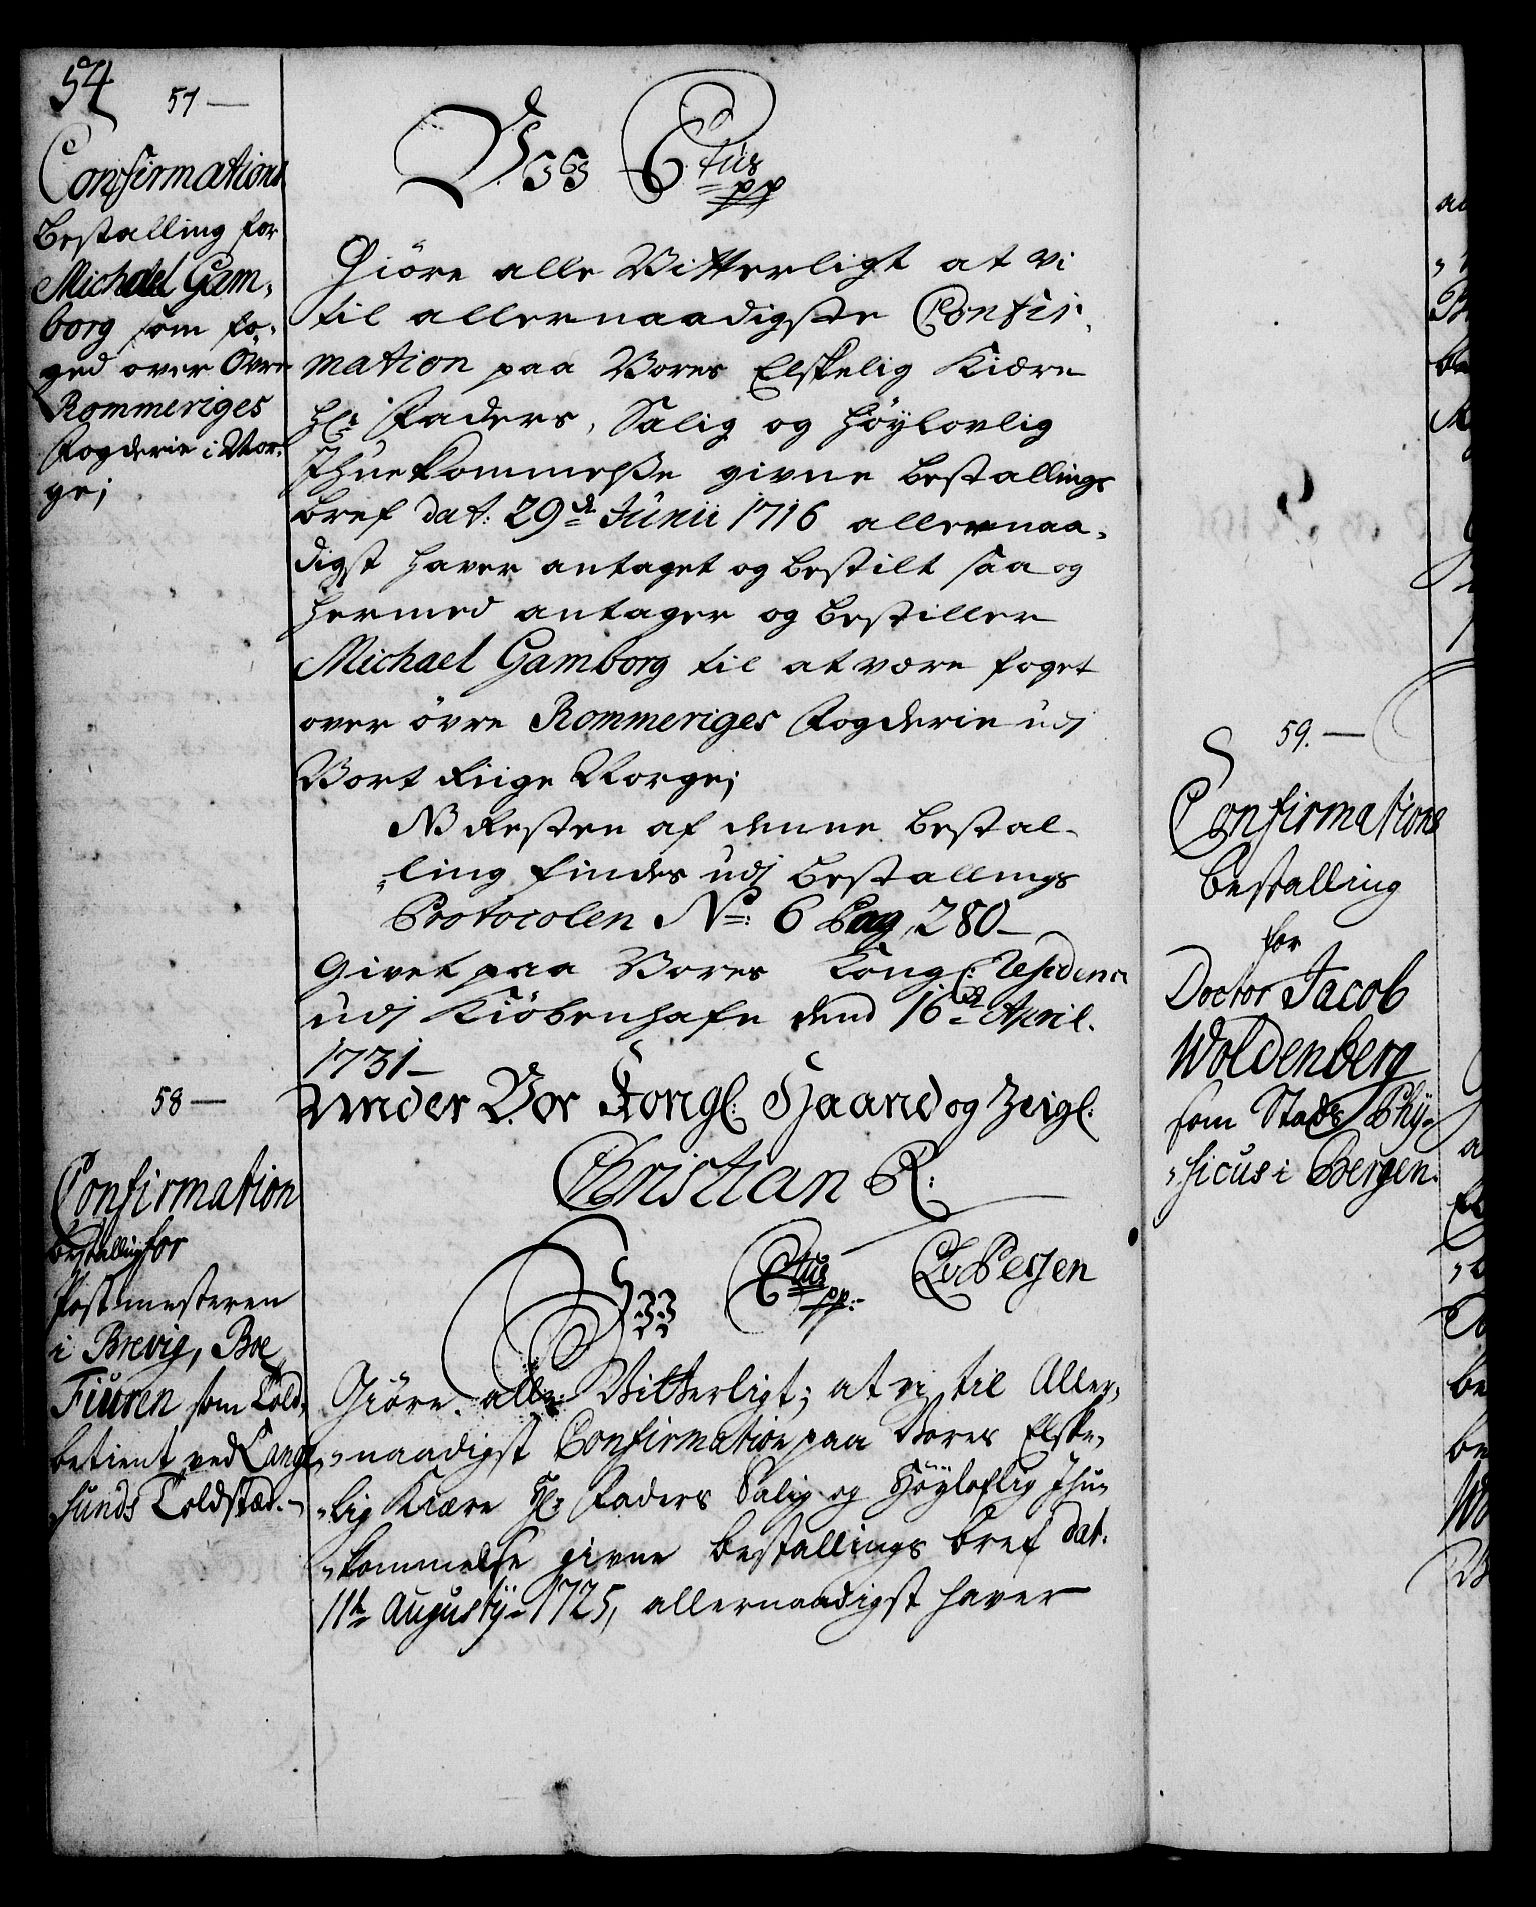 54
57 —
Confirmations
Bestalling for
Michael Gam,
borg som fo,
ged over Övre
Rommeriges
Fogderie i Nor,
ge;
Vi C. 6tus
pp
Giöre alle Vitterligt at vi
til allernaadigste Confir,
mation paa Vores Elskelig Kiære
Hr: Faders, Salig og Höylovlig
Ihuekommelße givne Bestallings
Bref dat: 29de Junii 1716 allernaa,
digst haver antaget og bestilt saa og
hermed antager og bestiller
Michael Gamborg til at være foget
over övre Rommeriges Fogderie udj
Vort Riige Norge;
NB Resten af denne Bestal-
„ling findes udj Bestallings
Protocolen No: 6 Pag. 280 —
Givet paa Vores Kongl: Residence
udj Kiöbenhafn dend 16de April.
1731 —
Under Vor Kongl: Haand og Zeigl:
Christian R:
58 —
Confirmation
bestalling for
Postmesteren
i Brevig, Boe
Fiuren som Told,
betient ved Lange,
sunds Toldstæd. —
C. 6tus
pp:
Giöre alle Vitterligt; at vi til Aller,
„naadigst Confirmation paa Vores Elske,
„lig Kiære Hr: Faders Salig og Höyloflig Ihu,
„kommelse givne bestallings bref dat:
11te Augustÿ 1725, allernaadigst haver
59. —
Confirmations
bestalling
for
Doctor Jacob
Woldenberg
som Stads Phÿ,
„sicus i Bergen.